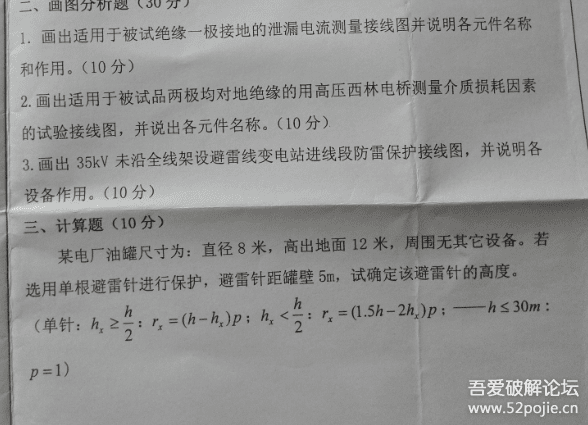 二、画图分析题（30分）
1. 画出适用于被试绝缘一极接地的泄漏电流测量接线图并说明各元件名称
和作用。（10分）
2.画出适用于被试品两极均对地绝缘的用高压西林电桥测量介质损耗因素
的试验接线图，并说出各元件名称。（10分）
3.画出 35kV 未沿全线架设避雷线变电站进线段防雷保护接线图，并说明各
设备作用。（10分）
三、计算题（10分）
某电厂油罐尺寸为：直径8米，高出地面12米，周围无其它设备。若
选用单根避雷针进行保护，避雷针距罐壁5m，试确定该避雷针的高度。
（单针：hₓ ≥ h/2：rₓ = (h−hₓ)p；hₓ < h/2：rₓ = (1.5h−2hₓ)p；——h ≤ 30m：
p = 1）
吾爱破解论坛
www.52pojie.cn